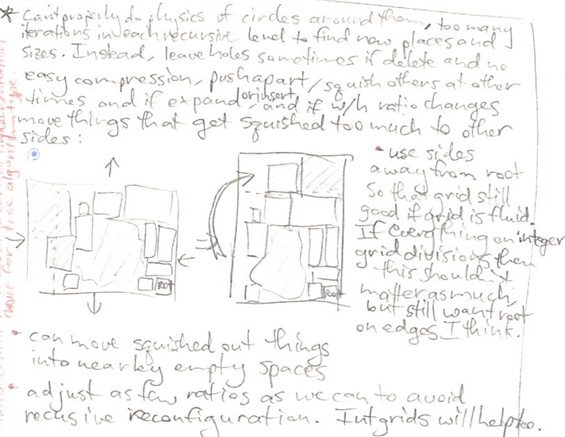 * Can't properly do physics of circles around them, too many
iterations in each recursive level to find new places and
sizes. Instead, leave holes sometimes if delete and no
easy compression, push apart/squish others at other
times and if expand or insert, and if w/h ratio changes
move things that get squished too much to other
sides:
• use sides
away from root
so that grid still
good if grid is fluid.
If everything on integer
grid divisions then
this shouldn't
matter as much
but still want root
on edges I think.
root
root
• can move squished out things
into nearby empty spaces
• adjust as few ratios as we can to avoid
recusive reconfiguration. Int grids will help too.
choice for tree algorithm type